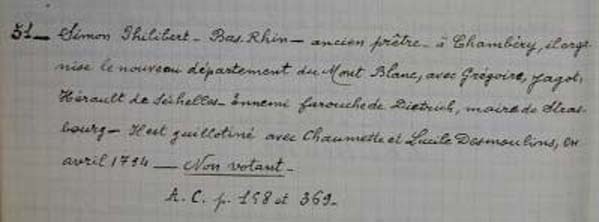 51_ Simon Philibert_ Bas.Rhin_ ancien prêtre_ à Chambéry, il orga
nise le nouveau département du Mont Blanc, avec Grégoire, Jagot,
Hérault de Séchelles_ Ennemi farouche de Dietrich, maire de Stras-
bourg_ Il est guillotiné avec Chaumette et Lucile Desmoulins, en
avril 1794 __ Non votant_
A.C. p. 158 et 369_